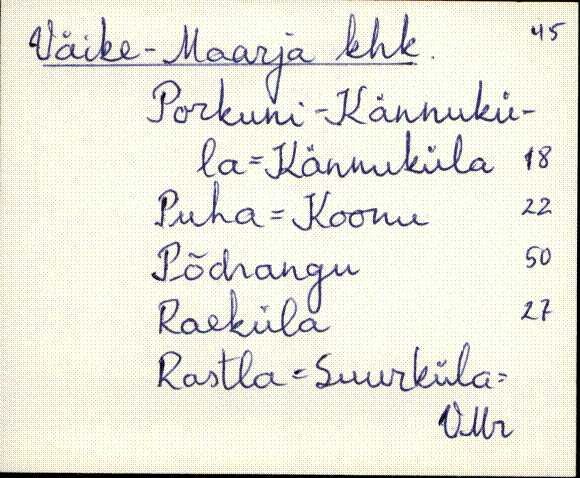 Väike-Maarja khk. 45
Porkuni-Kännukü-
la=Kännuküla 18
Puha=Koonu 22
Põdrangu 50
Raeküla 27
Rastla=Suurküla=
VMr